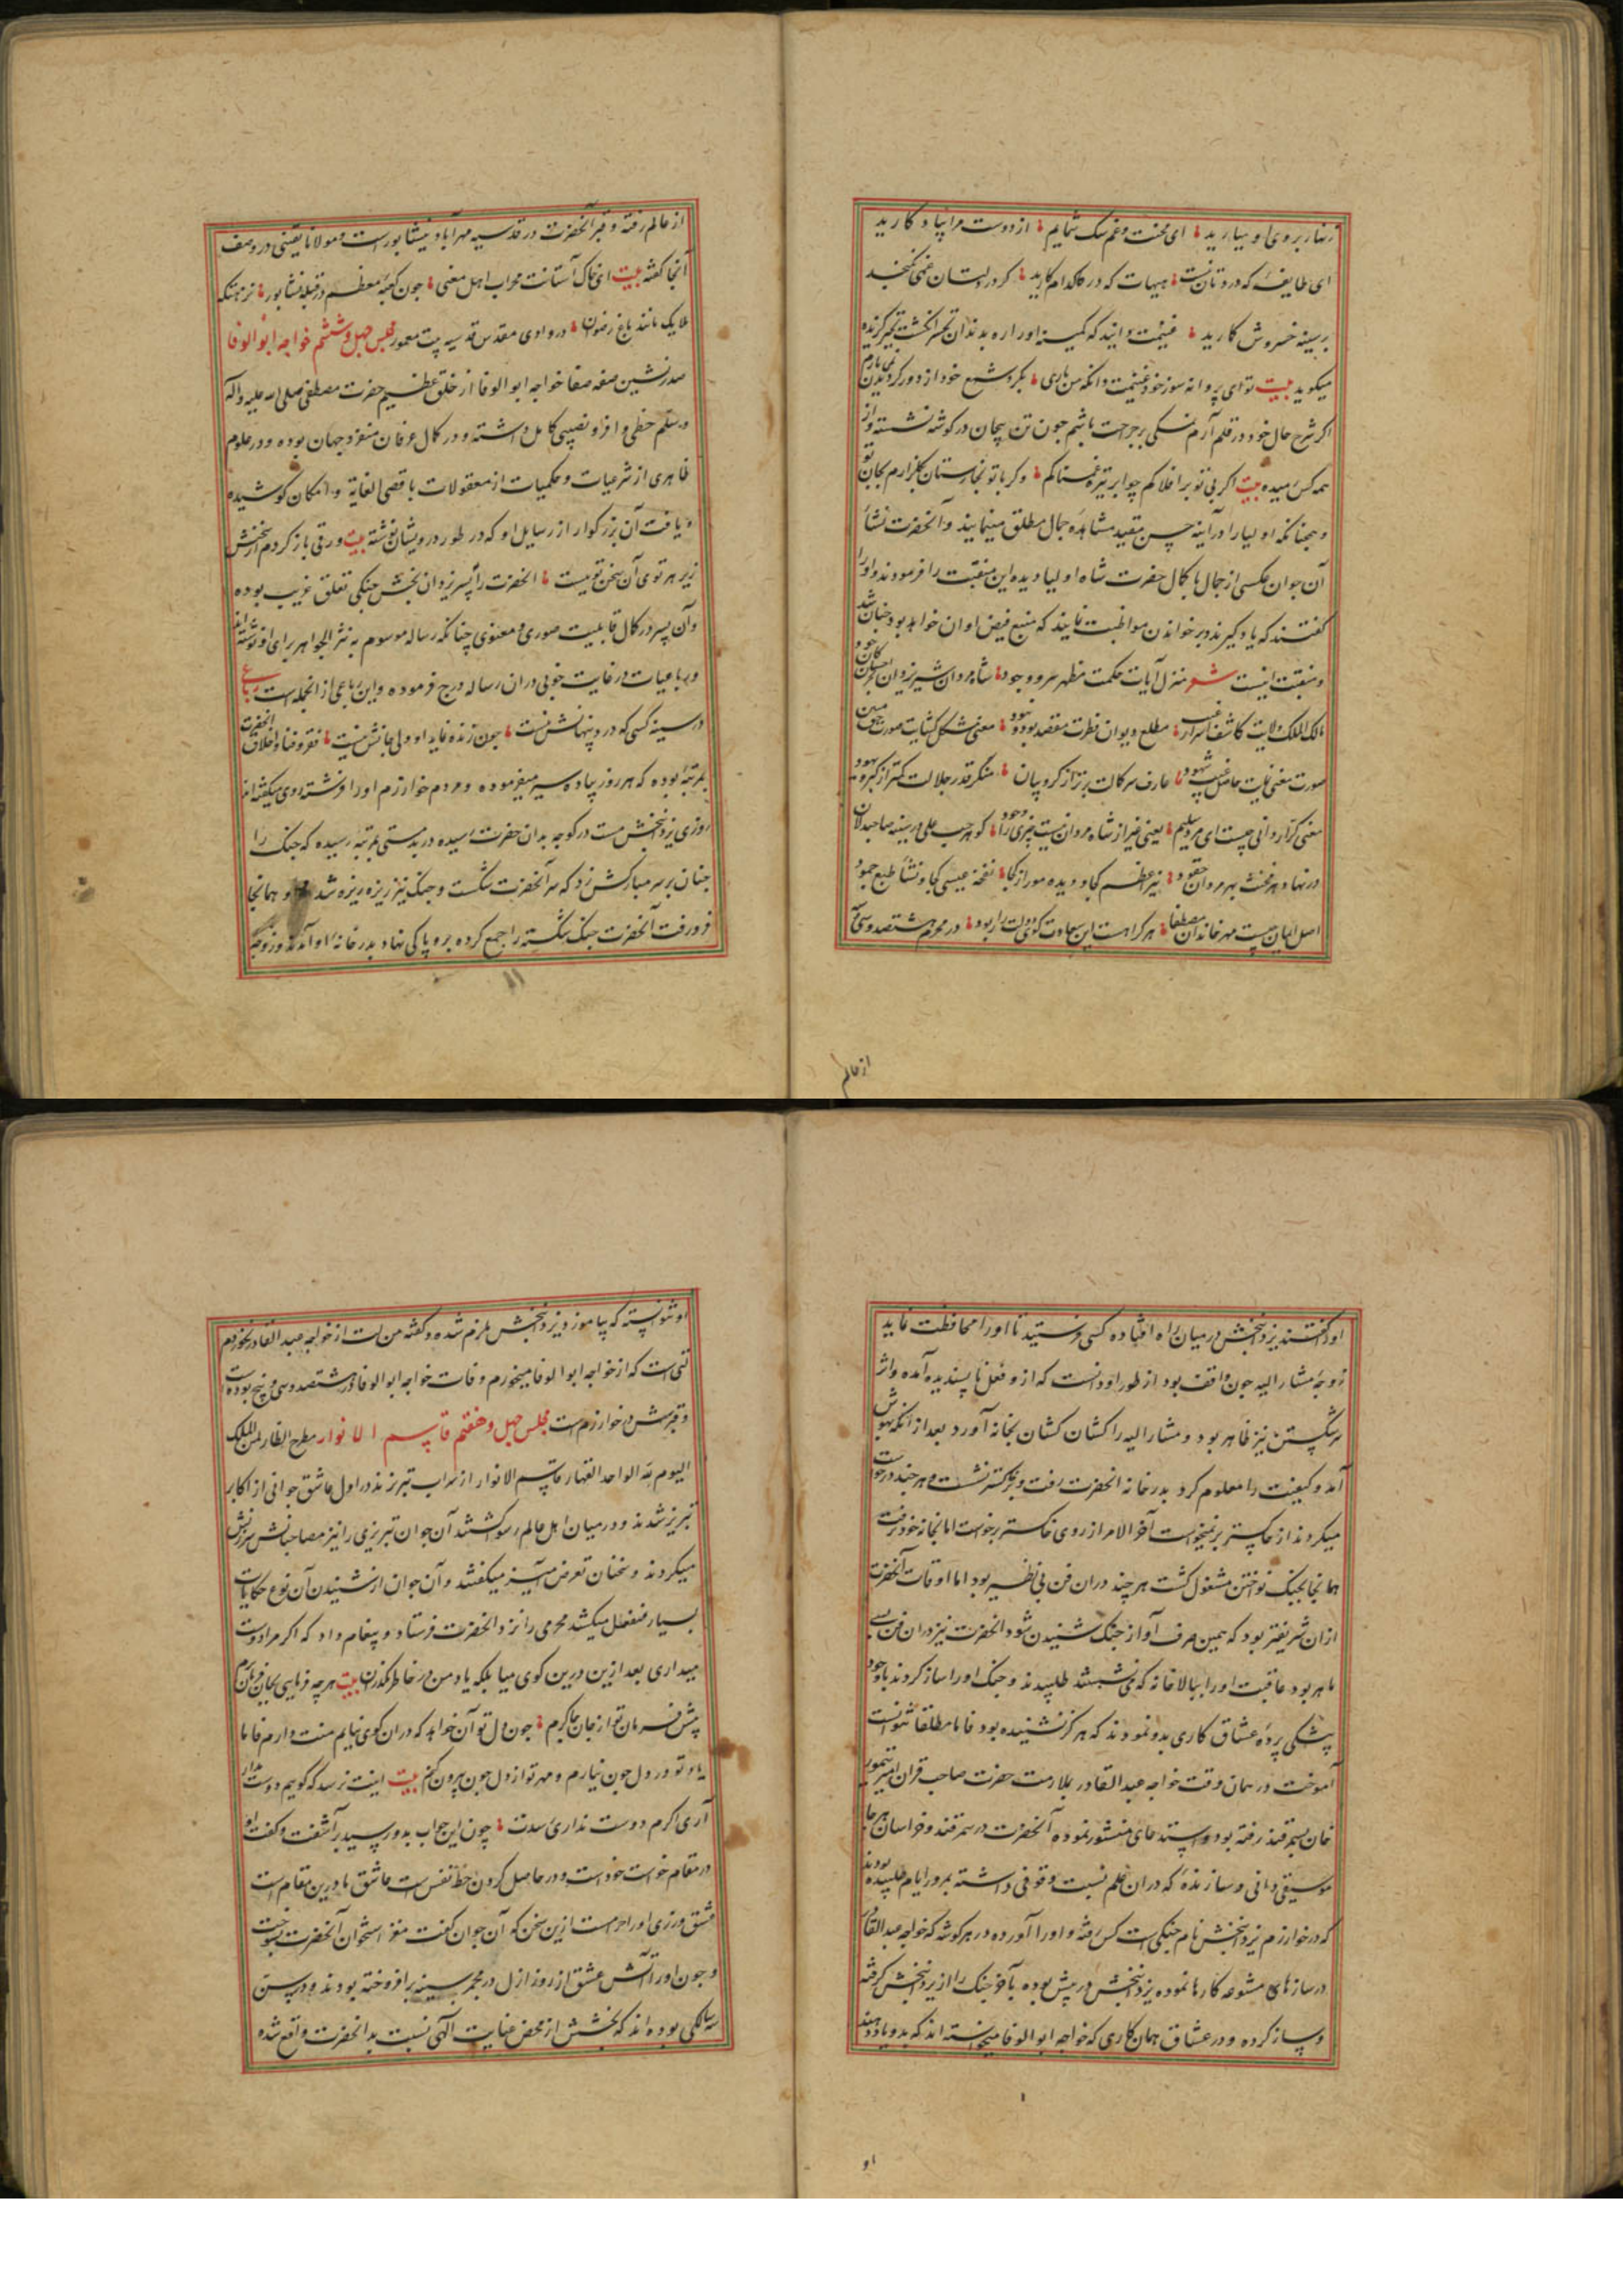 زنهار بروی او بیارید ؛ ای محنت و غم سک شمایم ؛ از دوست مرا بیاد کارید
ای طایفهٔ که در وتان نیست ؛ هیهات که در کدام کارید ؛ کر دلستان نمی کنجد
بر سینه خسروش کارید ؛ غنیمت دانید که کمینه او را ره بدندان تحسر انکشت تحیر کزیده
میکوید بیت تو ای پروانه سوز خود غنیمت دان که من باری ؛ بکرد شمع خود از دور کردیدن نمی یارم
اکر شرح حال خود در قلم آرم نسکی بر جراحت باشم جون تن بیجان در کوشه نشسته و از
همه کس رمیده بیت اکر بی تو بر افلاکم چو ابر تیره غمناکم ؛ وکر با تو بخارستان بکلزارم بجان تو
و همچنانکه اولیا را در آینه حسن مقید مشاهده جمال مطلق مینمایند و آنحضرت نشأ
آن جوان عکسی از جمال با کمال حضرت شاه اولیا دیده این منقبت را فرمودند و او را
کفتند که یاد کیرند و بر خواندن مواظبت نمایند که منبع فیض او آن خواهد بود و چنان شد
و منقبت اینست شعر منزل آیات حکمت مظهر سر وجود ؛ شاه مردان شیر یزدان بحر احسان کان جود
مالک الملک ولایت کاشف اسرار غیب ؛ مطلع دیوان فطرت مقصد بود و نبود ؛ معنی مشکل کشایت صورت حق مبین
صورت معنی نمایت حاصل غیب و شهود ؛ عارف سر کمالت برتر از کروبیان ؛ منکر قدر جلالت کمتر از کبر و یهود
معنی کرار دانی چیست ای مرد سلیم ؛ یعنی غیر از شاه مردان نیست چیزی را وجود ؛ کوهر حب علی در سینه صاحبدلان
در نهاد هر مخنث بهر مردان حقود ؛ نیر اعظم کجا و دیده مور از کجا ؛ نفخه عیسی کجا و نشأ طبع جمود
اصل ایمان چیست مهر خاندان مصطفا ؛ هر کرا هست این سعادت کوی دولت را ربود ؛ در محرم هشتصد و سی
از عالم
از عالم رفته و قبر آنحضرت در قدسیه مهرآباد نیشابور است و مولانا یقینی در وصف
آنجا کفته بیت ای خاک آستانت محراب اهل معنی ؛ جون کعبهٔ معظم در قبله نشابور ؛ نزهتکه
ملایک مانند باغ رضوان ؛ در وادی مقدس قدسیه بیت معمور مجلس چهل و ششم خواجه ابو الوفا
صدر نشین صفه صفا خواجه ابو الوفا از خلق عظیم حضرت مصطفی صلی الله علیه و آله
و سلم حظی وافر و نصیبی کامل داشته و در کمال عرفان منفرد جهان بوده و در علوم
ظاهری از شرعیات و حکمیات از معقولات باقصی الغایة و امکان کوشیده
و یافت آن بزرکوار از رسایل او که در طور درویشان نوشته بیت ورقی باز کردم از سخنش
زیر هر توی آن سخن توییست ؛ آنحضرت را بپسر یزدان بخش چنکی تعلق غریب بوده
و آن پسر در کمال قابلیت صوری و معنوی چنانکه رساله موسوم به نثر الجواهر برای او نوشته اند
و رباعیات در غایت خوبی در ان رساله درج فرموده و این رباعی از انجمله است رباعی
در سینه کسی که درد پنهانش نیست ؛ جون زنده نماید او ولی جانش نیست ؛ فقر و فنا و اخلاق آنحضرت
بمرتبهٔ بوده که هر روز پیاده سیر میفرموده و مردم خوارزم او را فرشته روی میکفته اند
روزی یزدانبخش مست در کوچه بدان حضرت رسیده در بدمستی بمرتبه رسیده که چنک را
چنان بر سر مبارکش زد که سر آنحضرت شکست و چنک نیز ریزه ریزه شد و همانجا
فرو رفت آنحضرت چنک شکسته را جمع کرده بر و پاکی نهاد بدر خانهٔ او آمد و زوجه
او را کفتند یزدانبخش در میان راه افتاده کسی فرستید تا او را محافظت نماید
زوجهٔ مشار الیه چون واقف بود از طور او دانست که ازو فعل ناپسندیده آمده و اثر
سر شکستن نیز ظاهر بود و مشار الیه را کشان کشان بخانه آورد بعد از آنکه بهوش
آمد و کیفیت را معلوم کرد بدر خانه آنحضرت رفت و بر خاکستر نشست و هر چند درخواست
میکردند از خاکستر بر نمیخواست آخر الامر از روی خاکستر برخواست اما بخانه خود نرفت
همانجا بچنک نواختن مشغول کشت هر چند در ان فن بی نظیر بود اما اوقات آنحضرت
از ان شریفتر بود که همین صرف آواز چنک شنیدن شود و آنحضرت نیز در ان فن بسی
ماهر بود عاقبت او را ببالا خانه که می نشستند طلبیدند و چنک او را ساز کردند با وجود
پیشکی پردهٔ عشاق کاری بدو نمودند که هرکز نشنیده بود فاما مطلقا نتوانست
آموخت در همان وقت خواجه عبد القادر بملازمت حضرت صاحب قران امیر تیمور
خان بسمرقند رفته بود و استدعای منشور نموده آنحضرت در سمرقند و خراسان هر جا
موسیقی دانی و سازندهٔ که در ان علم نسبت وقوفی داشته بمرور ایام طلبیده بودند
که در خوارزم یزدانبخش نام چنکی است کس رفته و او را آورده در هر کوشه که خواجه عبد القادر
در سازهای متنوعه کارها نموده یزدانبخش در پیش بوده بآخر چنک را از یزدانبخش کرفته
و ساز کرده و در عشاق همان کاری که خواجه ابو الوفا میخواسته اند که بدو یاد دهند
او
او نتوانسته که بیاموزد یزدانبخش ملزم شده و کفته من لت از خواجه عبد القادر نخوردم
لتی است که از خواجه ابو الوفا میخورم وفات خواجه ابو الوفا در هشتصد و سی و پنج بوده است
و قبرش در خوارزم است مجلس چهل و هفتم قاسم الانوار مطرح انظار لمن الملک
الیوم لله الواحد القهار قاسم الانوار از سراب تبریزند در اول عاشق جوانی از اکابر
تبریز شدند و در میان اهل عالم رسوا کشتند آن جوان تبریزی را نیز مصاحبانش سرزنش
میکردند و سخنان تعرض آمیز میکفتند و آن جوان از شنیدن آن نوع حکایات
بسیار منفعل میکشت محرمی را نزد آنحضرت فرستاد و پیغام داد که اکر مرا دوست
میداری بعد ازین درین کوی میا بلکه یاد من در خاطر مکذران بیت هر چه فرمایی بجان فرمان برم
پیش فرمان تو از جان چاکرم ؛ چون دل تو آن خواهد که در ان کوی نیایم منت دارم فاما
یاد تو در دل چون نیارم و مهر تو از دل چون بیرون کنم بیت اینت نرسد که کویم دوست مدار
آری اکرم دوست نداری رسدت ؛ چون این جواب بدو رسید برآشفت و کفت او
در مقام خواست خود است و در حاصل کردن حظ نفس است عاشق ما درین مقام است
عشق ورزی او را حرامست ازین سخن که آن جوان کفت مغز استخوان آنحضرت بسوخت
و چون او را آتش عشق از روز ازل در مجمر سینه بر افروخته بودند و در پستن
سالکی بوده اند که بخشش از محض عنایت الهی نسبت بدانحضرت واقع شده